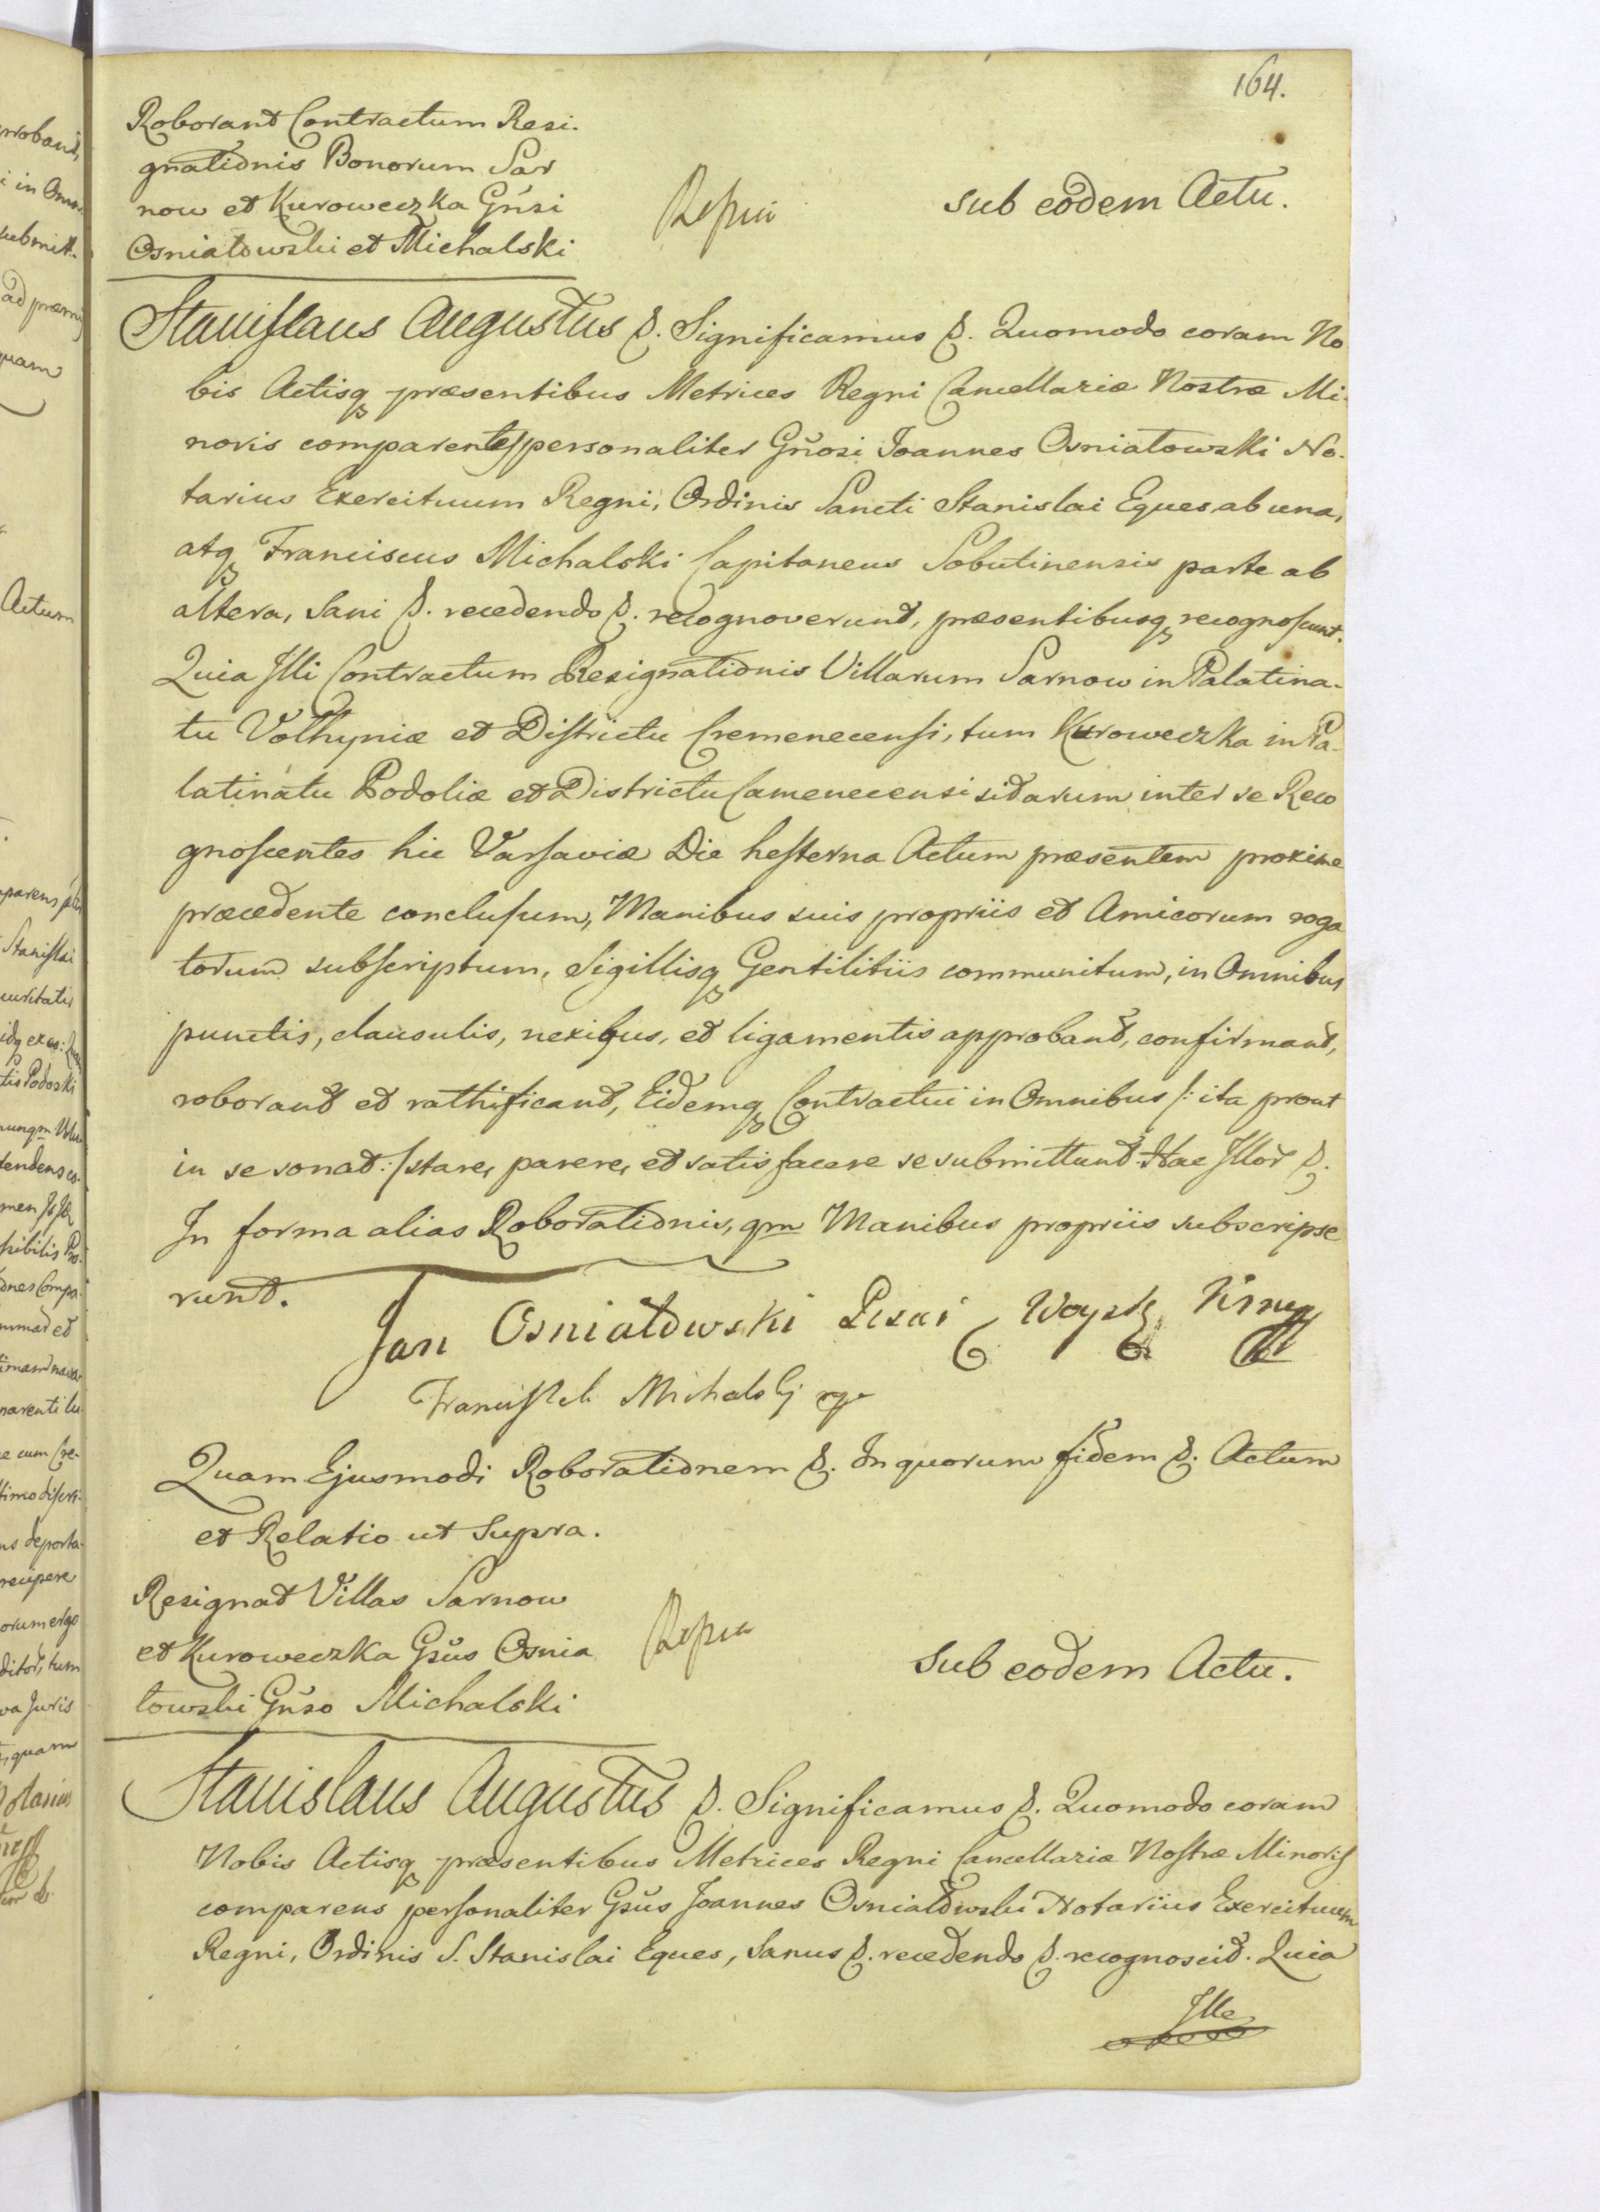 164.
Roborant Contractum Resi-
gnationis Bonorum Sar
now et Kuroweczka Gnsi
Osniatowski et Michalski
sub eodem Actu.
Stanislaus Augustus &. Significamus &. Quomodo coram No
bis Actisq præsentibus Metrices Regni Cancellariæ Nostræ Mi-
noris comparentes personaliter Gnosi Joannes Osniatowski No-
tarius Exercituum Regni, Ordinis Sancti Stanislai Eques ab una,
atq Franciscus Michalski Capitaneus Sobutinensis parte ab
altera, Sani &. recedendo &. recognoverunt, præsentibusq recognoscunt.
Quia Illi Contractum Resignationis Villarum Sarnow in Palatina-
tu Volhyniæ et Districtu Cremenecensi, tum Kuroweczka in Pa-
latinatu Podoliæ et Districtu Camenecensi sitarum inter se Reco
gnoscentes hic Varsaviæ Die hesterna Actum præsentem proxime
præcedente conclusum, Manibus suis propriis et Amicorum roga
torum subscriptum, Sigillisq Gentilitiis communitum, in Omnibus
punctis, clausulis, nexibus, et ligamentis approbant, confirmant,
roborant et rathificant, Eidemq Contractui in Omnibus /: ita prout
in se sonat :/ stare, parere, et satisfacere se submittunt. Hac Illor &.
In forma alias Roborationis, qm Manibus propriis subscripse
runt.
Jan Osniatowski Pisarz Woysk
Franciszek Michalski
Quam Ejusmodi Roborationem &. In quorum fidem &. Actum
et Relatio ut Supra.
Resignat Villas Sarnow
et Kuroweczka Gsus Osnia
towski Gnso Michalski
Sub eodem Actu.
Stanislaus Augustus &. Significamus &. Quomodo coram
Nobis Actisq præsentibus Metrices Regni Cancellariæ Nostræ Minoris
comparens personaliter Gsus Joannes Osniatowski Notarius Exercituum
Regni, Ordinis S. Stanislai Eques, Sanus &. recedendo &. recognoscit. Quia
Ille